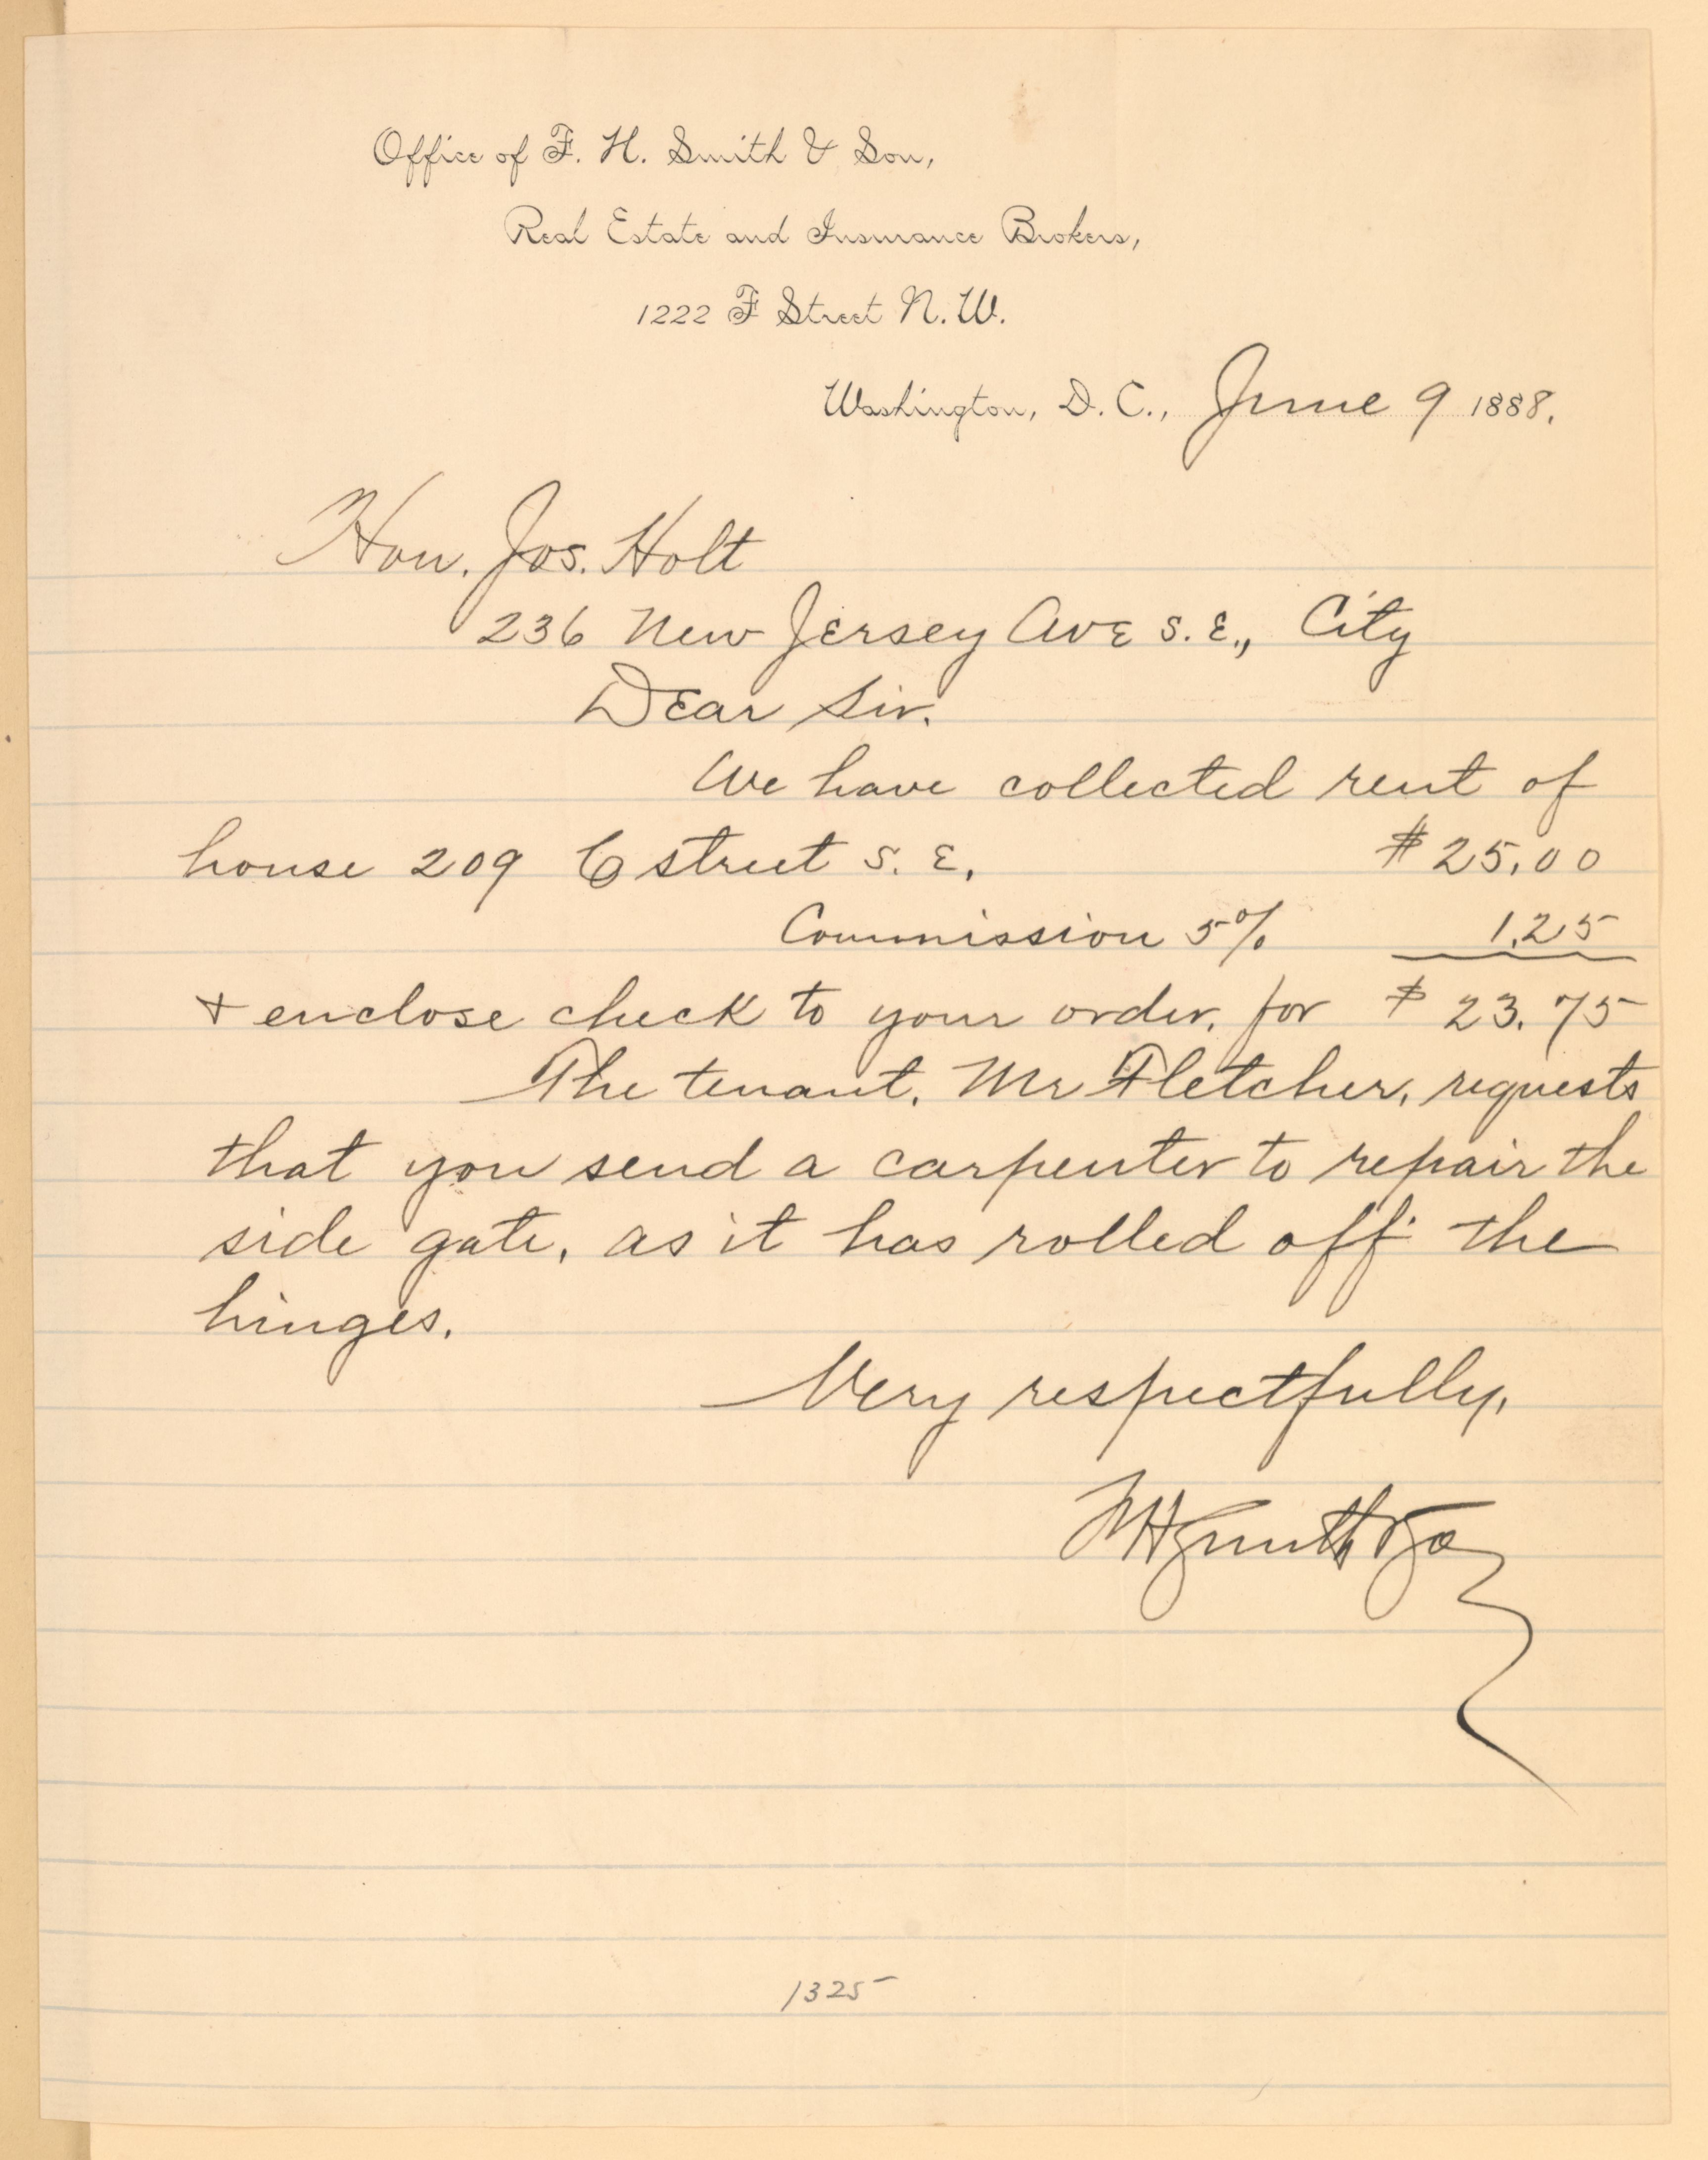 Office of F. H. Smith & Son,
Real Estate and Insurance Brokers,
1222 F Street N. W.
Washington, D. C., June 9 1888.
Hon. Jos. Holt
236 New Jersey Ave S. E., City
Dear Sir.
We have collected rent of
house 209 C street S. E. $25.00
Commission 5% 1.25
& enclose check to your order, for $23.75
The tenant, Mr Fletcher, requests
that you send a carpenter to repair the
side gate, as it has rolled off the
hinges.
Very respectfully,
FHSmith & So
1325